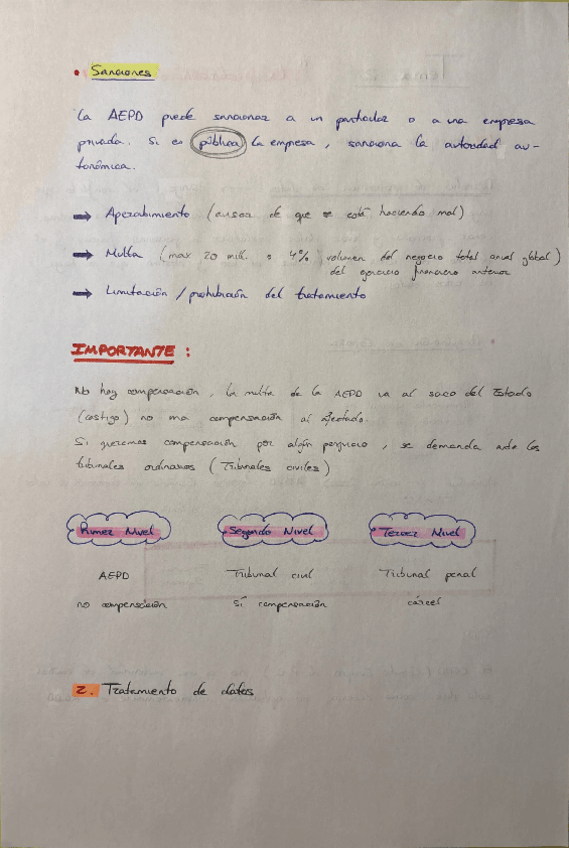 • Sanciones
La AEPD puede sancionar a un particular o a una empresa
privada. Si es pública la empresa, sanciona la autoridad au-
tonómica.
→ Apercibimiento (avisar de que se está haciendo mal)
→ Multa (max 20 mill. o 4% volumen del negocio total anual global)
del ejercicio financiero anterior
→ Limitación / prohibición del tratamiento
IMPORTANTE :
No hay compensación, la multa de la AEPD va al saco del Estado
(castigo) no una compensación al afectado.
Si queremos compensación por algún perjuicio, se demanda ante los
tribunales ordinarios (Tribunales civiles)
Primer Nivel Segundo Nivel Tercer Nivel
AEPD Tribunal civil Tribunal penal
no compensación Sí compensación cárcel
2. Tratamiento de datos